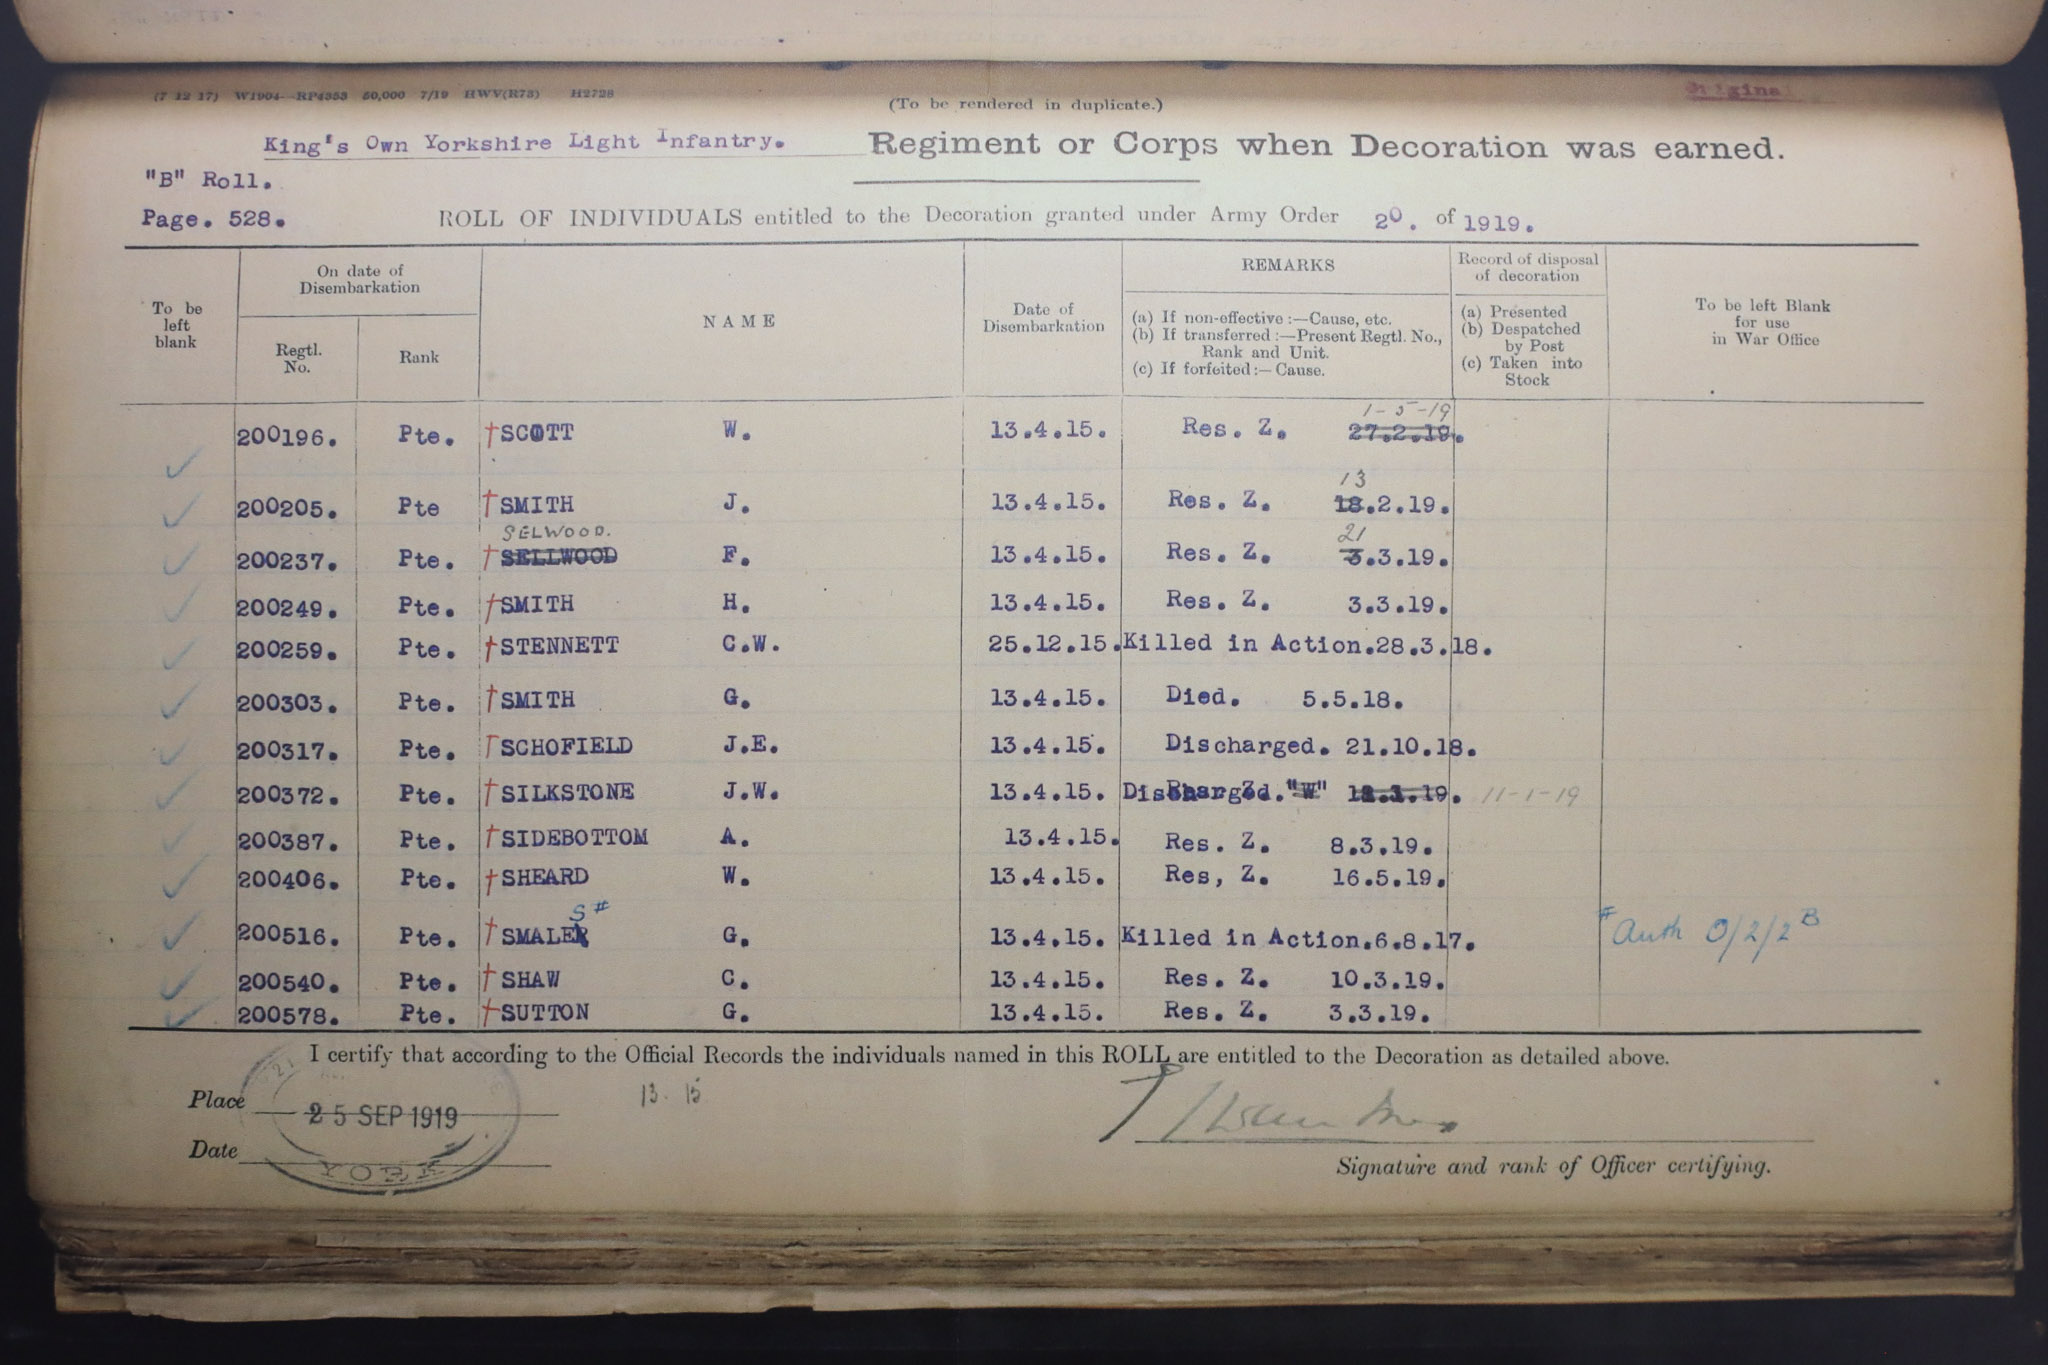 (7 12 17) W1904— RP4353 50,000 7/19 HWV(R73) H2728
Original
(To be rendered in duplicate.)
King's Own Yorkshire Light Infantry. Regiment or Corps when Decoration was earned.
"B" Roll.
Page. 528. ROLL OF INDIVIDUALS entitled to the Decoration granted under Army Order 20. of 1919.
To be left blank
On date of Disembarkation
Regtl. No.
Rank
NAME
Date of Disembarkation
REMARKS
(a) If non-effective :—Cause, etc.
(b) If transferred :—Present Regtl. No., Rank and Unit.
(c) If forfeited :— Cause.
Record of disposal of decoration
(a) Presented
(b) Despatched by Post
(c) Taken into Stock
To be left Blank for use in War Office
1-5-19
200196. Pte. †SCOTT W. 13.4.15. Res. Z. 27.2.19.
13
200205. Pte †SMITH J. 13.4.15. Res. Z. 18.2.19.
SELWOOD. 21
200237. Pte. †SELLWOOD F. 13.4.15. Res. Z. 3.3.19.
200249. Pte. †SMITH H. 13.4.15. Res. Z. 3.3.19.
200259. Pte. †STENNETT C.W. 25.12.15. Killed in Action.28.3.18.
200303. Pte. †SMITH G. 13.4.15. Died. 5.5.18.
200317. Pte. †SCHOFIELD J.E. 13.4.15. Discharged. 21.10.18.
200372. Pte. †SILKSTONE J.W. 13.4.15. Discharged. "W" .19. 11-1-19
200387. Pte. †SIDEBOTTOM A. 13.4.15. Res. Z. 8.3.19.
200406. Pte. †SHEARD W. 13.4.15. Res, Z. 16.5.19.
S #
200516. Pte. †SMALER G. 13.4.15. Killed in Action.6.8.17. # Auth 0/2/2B
200540. Pte. †SHAW C. 13.4.15. Res. Z. 10.3.19.
200578. Pte. †SUTTON G. 13.4.15. Res. Z. 3.3.19.
I certify that according to the Official Records the individuals named in this ROLL are entitled to the Decoration as detailed above.
Place
13. 15
25 SEP 1919
Date
YORK
Signature and rank of Officer certifying.